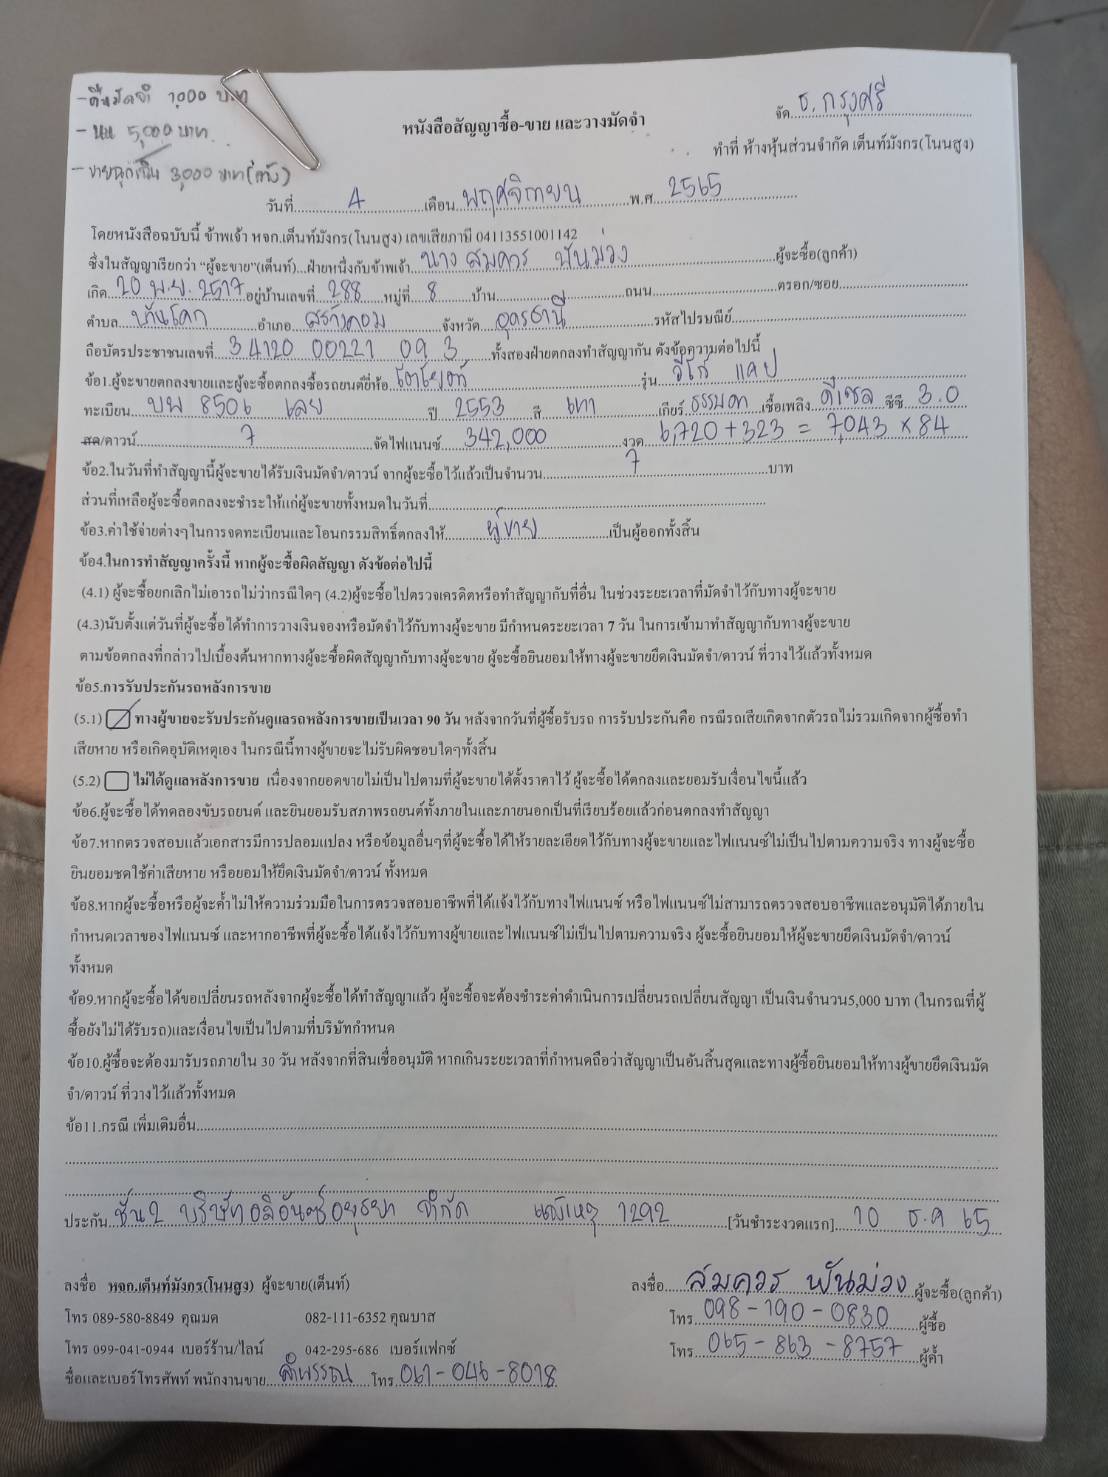 -คืนมัดจำ 7,000 บาท
- หน 5,000 บาท
- ขายฉุกเฉิน 3,000 บาท (แท้ง)
จัด ธ. กรุงศรี
หนังสือสัญญาซื้อ-ขาย และวางมัดจำ
ทำที่ ห้างหุ้นส่วนจำกัด เต็นท์มังกร(โนนสูง)
วันที่ 4 เดือน พฤศจิกายน พ.ศ. 2565
โดยหนังสือฉบับนี้ ข้าพเจ้า หจก.เต็นท์มังกร(โนนสูง) เลขเสียภาษี 04113551001142
ซึ่งในสัญญาเรียกว่า “ผู้จะขาย”(เต็นท์)...ฝ่ายหนึ่งกับข้าพเจ้า นาง สมควร พันม่วง ผู้จะซื้อ(ลูกค้า)
เกิด 20 พ.ย. 2517 อยู่บ้านเลขที่ 288 หมู่ที่ 8 บ้าน ถนน ตรอก/ซอย
ตำบล บ้านโคก อำเภอ สร้างคอม จังหวัด อุดรธานี รหัสไปรษณีย์
ถือบัตรประชาชนเลขที่ 3 4120 00221 09 3 ทั้งสองฝ่ายตกลงทำสัญญากัน ดังข้อความต่อไปนี้
ข้อ1.ผู้จะขายตกลงขายและผู้จะซื้อตกลงซื้อรถยนต์ยี่ห้อ โตโยต้า รุ่น วีโก้ แคป
ทะเบียน บพ 8506 เลย ปี 2553 สี เทา เกียร์ ธรรมดา เชื้อเพลิง ดีเซล ซีซี 3.0
สด/ดาวน์ 7 จัดไฟแนนซ์ 342,000 งวด 6,720+323 = 7,043 x 84
ข้อ2.ในวันที่ทำสัญญานี้ผู้จะขายได้รับเงินมัดจำ/ดาวน์ จากผู้จะซื้อไว้แล้วเป็นจำนวน 7 บาท
ส่วนที่เหลือผู้จะซื้อตกลงจะชำระให้แก่ผู้จะขายทั้งหมดในวันที่
ข้อ3.ค่าใช้จ่ายต่างๆในการจดทะเบียนและโอนกรรมสิทธิ์ตกลงให้ ผู้ขาย เป็นผู้ออกทั้งสิ้น
ข้อ4.ในการทำสัญญาครั้งนี้ หากผู้จะซื้อผิดสัญญา ดังข้อต่อไปนี้
(4.1) ผู้จะซื้อยกเลิกไม่เอารถไม่ว่ากรณีใดๆ (4.2)ผู้จะซื้อไปตรวจเครดิตหรือทำสัญญากับที่อื่น ในช่วงระยะเวลาที่มัดจำไว้กับทางผู้จะขาย
(4.3)นับตั้งแต่วันที่ผู้จะซื้อได้ทำการวางเงินจองหรือมัดจำไว้กับทางผู้จะขาย มีกำหนดระยะเวลา 7 วัน ในการเข้ามาทำสัญญากับทางผู้จะขาย
ตามข้อตกลงที่กล่าวไปเบื้องต้นหากทางผู้จะซื้อผิดสัญญากับทางผู้จะขาย ผู้จะซื้อยินยอมให้ทางผู้จะขายยึดเงินมัดจำ/ดาวน์ ที่วางไว้แล้วทั้งหมด
ข้อ5.การรับประกันรถหลังการขาย
(5.1) ทางผู้ขายจะรับประกันดูแลรถหลังการขายเป็นเวลา 90 วัน หลังจากวันที่ผู้ซื้อรับรถ การรับประกันคือ กรณีรถเสียเกิดจากตัวรถไม่รวมเกิดจากผู้ซื้อทำ
เสียหาย หรือเกิดอุบัติเหตุเอง ในกรณีนี้ทางผู้ขายจะไม่รับผิดชอบใดๆทั้งสิ้น
(5.2) ไม่ได้ดูแลหลังการขาย เนื่องจากยอดขายไม่เป็นไปตามที่ผู้จะขายได้ตั้งราคาไว้ ผู้จะซื้อได้ตกลงและยอมรับเงื่อนไขนี้แล้ว
ข้อ6.ผู้จะซื้อ ได้ทดลองขับรถยนต์ และยินยอมรับสภาพรถยนต์ทั้งภายในและภายนอกเป็นที่เรียบร้อยแล้วก่อนตกลงทำสัญญา
ข้อ7.หากตรวจสอบแล้วเอกสารมีการปลอมแปลง หรือข้อมูลอื่นๆที่ผู้จะซื้อได้ให้รายละเอียดไว้กับทางผู้จะขายและไฟแนนซ์ไม่เป็นไปตามความจริง ทางผู้จะซื้อ
ยินยอมชดใช้ค่าเสียหาย หรือยอมให้ยึดเงินมัดจำ/ดาวน์ ทั้งหมด
ข้อ8.หากผู้จะซื้อหรือผู้จะค้ำไม่ให้ความร่วมมือในการตรวจสอบอาชีพที่ได้แจ้งไว้กับทางไฟแนนซ์ หรือไฟแนนซ์ไม่สามารถตรวจสอบอาชีพและอนุมัติได้ภายใน
กำหนดเวลาของไฟแนนซ์ และหากอาชีพที่ผู้จะซื้อได้แจ้งไว้กับทางผู้ขายและไฟแนนซ์ไม่เป็นไปตามความจริง ผู้จะซื้อยินยอมให้ผู้จะขายยึดเงินมัดจำ/ดาวน์
ทั้งหมด
ข้อ9.หากผู้จะซื้อได้ขอเปลี่ยนรถหลังจากผู้จะซื้อได้ทำสัญญาแล้ว ผู้จะซื้อจะต้องชำระค่าดำเนินการเปลี่ยนรถเปลี่ยนสัญญา เป็นเงินจำนวน5,000 บาท (ในกรณที่ผู้
ซื้อยังไม่ได้รับรถ)และเงื่อนไขเป็นไปตามที่บริษัทกำหนด
ข้อ10.ผู้ซื้อจะต้องมารับรถภายใน 30 วัน หลังจากที่สินเชื่ออนุมัติ หากเกินระยะเวลาที่กำหนดถือว่าสัญญาเป็นอันสิ้นสุดและทางผู้ซื้อยินยอมให้ทางผู้ขายยึดเงินมัด
จำ/ดาวน์ ที่วางไว้แล้วทั้งหมด
ข้อ11.กรณี เพิ่มเติมอื่น
ประกัน ชั้น2 บริษัทอลิอันซ์อยุธยา จำกัด แจ้งเหตุ 1292 [วันชำระงวดแรก] 10 ธ.ค 65
ลงชื่อ หจก.เต็นท์มังกร(โนนสูง) ผู้จะขาย(เต็นท์)
ลงชื่อ สมควร พันม่วง ผู้จะซื้อ(ลูกค้า)
โทร 089-580-8849 คุณมด 082-111-6352 คุณบาส
โทร 098-190-0830 ผู้ซื้อ
โทร 099-041-0944 เบอร์ร้าน/ไลน์ 042-295-686 เบอร์แฟกซ์
โทร 065-863-8757 ผู้ค้ำ
ชื่อและเบอร์โทรศัพท์ พนักงานขาย ลำพรรณ โทร 061-046-8018